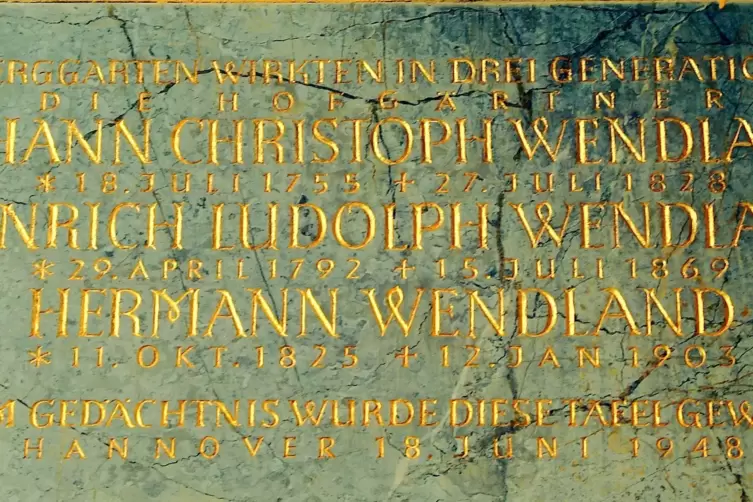 ERGGARTEN WIRKTEN IN DREI GENERATIO
DIE HOFGÄRTNER
HANN CHRISTOPH WENDLA
* 18. JULI 1755 + 27. JULI 1828
INRICH LUDOLPH WENDLA
* 29. APRIL 1792 + 15. JULI 1869
HERMANN WENDLAND
* 11. OKT. 1825 + 12. JAN 1903
M GEDÄCHTNIS WURDE DIESE TAFEL GEW
HANNOVER 18. JUNI 1948